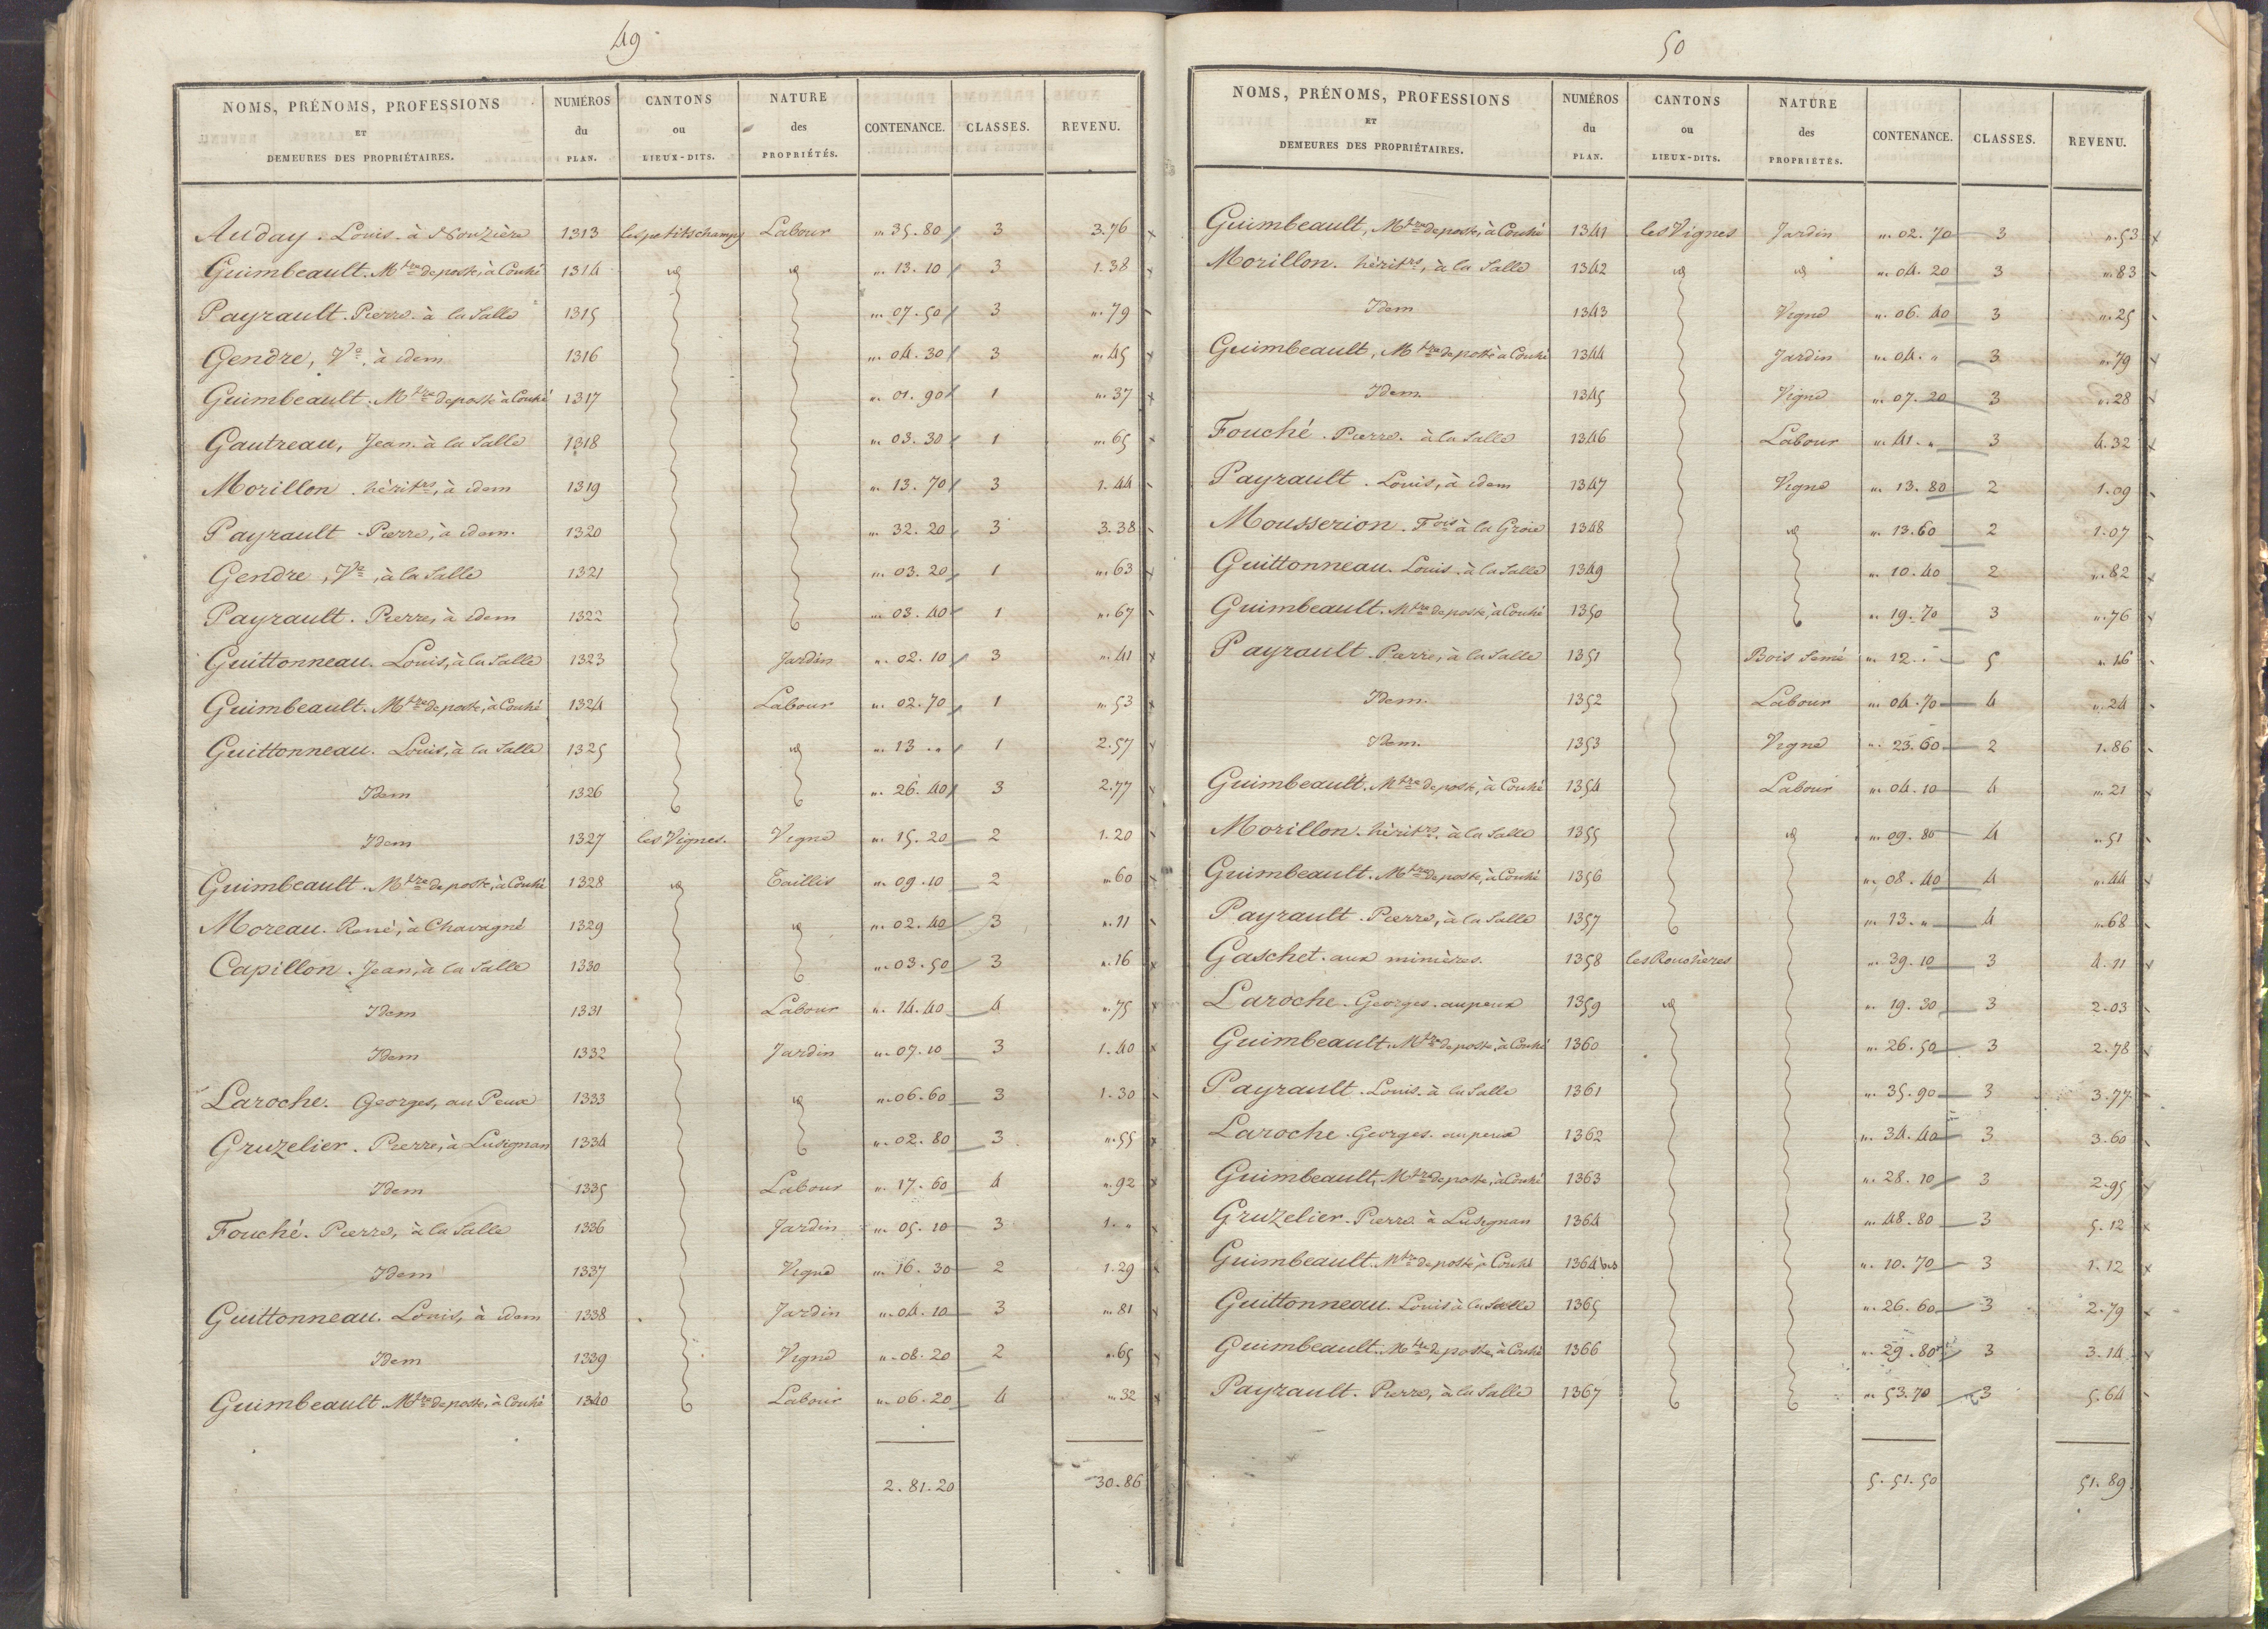 49
NOMS, PRÉNOMS, PROFESSIONS ET DEMEURES DES PROPRIÉTAIRES. NUMÉROS du PLAN. CANTONS ou LIEUX-DITS. NATURE des PROPRIÉTÉS. CONTENANCE. CLASSES. REVENU.
Auday. Louis. à Nouzière 1313 les petits champs Labour „. 35. 80 3 3.76
Guimbeault. Mtre de poste, à Couhé 1314 id id „. 13. 10 3 1.38
Payrault. Pierre. à la Salle 1315 „. 07. 50 3 „. 79
Gendre, Ve, à idem 1316 „. 04. 30 3 „. 45
Guimbeault. Mtre de poste à Couhé 1317 „. 01. 90 1 „. 37
Gautreau, Jean. à la Salle 1318 „. 03. 30 1 „. 65
Morillon. héritrs, à idem 1319 „. 13. 70 3 1. 44
Payrault. Pierre, à idem. 1320 „. 32. 20 3 3. 38
Gendre, Ve, à la Salle 1321 „. 03. 20 1 „. 63
Payrault. Pierre, à idem 1322 „. 03. 40 1 „. 67
Guittonneau. Louis, à la Salle 1323 Jardin „. 02. 10 3 „. 41
Guimbeault. Mtre de poste, à Couhé 1324 Labour „. 02. 70 1 „. 53
Guittonneau. Louis, à la Salle 1325 id „. 13 . „ 1 2.57
Idem 1326 „. 26. 40 3 2.77
Idem 1327 les Vignes. Vigne „. 15. 20 2 1. 20
Guimbeault. Mtre de poste, à Couhé 1328 id Taillis „. 09. 10 2 „. 60
Moreau. René, à Chavagné 1329 id „. 02. 40 3 „. 11
Capillon. Jean, à la Salle 1330 „. 03. 50 3 „. 16
Idem 1331 Labour „. 14. 40 4 „. 75
Idem 1332 Jardin „. 07. 10 3 1. 40
Laroche. Georges, au Peux 1333 id „. 06. 60 3 1. 30
Gruzelier. Pierre, à Lusignan 1334 „. 02. 80 3 „. 55
Idem 1335 Labour „. 17. 60 4 „. 92
Fouché. Pierre, à la Salle 1336 Jardin „. 05. 10 3 1. „
Idem 1337 Vigne „. 16. 30 2 1. 29
Guittonneau. Louis, à idem 1338 Jardin „. 04. 10 3 „. 81
Idem 1339 Vigne „. 08. 20 2 „. 65
Guimbeault. Mtre de poste, à Couhé 1340 Labour „. 06. 20 4 „. 32
2. 81. 20 30. 86
50
NOMS, PRÉNOMS, PROFESSIONS ET DEMEURES DES PROPRIÉTAIRES. NUMÉROS du PLAN. CANTONS ou LIEUX-DITS. NATURE des PROPRIÉTÉS. CONTENANCE. CLASSES. REVENU.
Guimbeault, Mtre de poste, à Couhé 1341 les Vignes Jardin „. 02. 70 3 „. 53
Morillon. héritrs, à la Salle 1342 id id „. 04. 20 3 „. 83
Idem 1343 Vigne „. 06. 40 3 „. 25
Guimbeault, Mtre de poste à Couhé 1344 Jardin „. 04. „ 3 „. 79
Idem. 1345 Vigne „. 07. 20 3 „. 28
Fouché. Pierre. à la Salle 1346 Labour „. 41. „ 3 4. 32
Payrault. Louis, à idem 1347 Vigne „. 13. 80 2 1. 09
Mousserion. Fois à la Groie 1348 id „. 13. 60 2 1. 07
Guittonneau. Louis. à la Salle 1349 „. 10. 40 2 „. 82
Guimbeault. Mtre de poste, à Couhé 1350 „. 19. 70 3 „. 76
Payrault. Pierre, à la Salle 1351 Bois Semé „. 12. „ 5 „. 16
Idem. 1352 Labour „. 04. 70 4 „. 24
Idem. 1353 Vigne „. 23. 60 2 1. 86
Guimbeault. Mtre de poste, à Couhé 1354 Labour „. 04. 10 4 „. 21
Morillon. héritrs, à la Salle 1355 id „. 09. 80 4 „. 51
Guimbeault. Mtre de poste, à Couhé 1356 „. 08. 40 4 „. 44
Payrault. Pierre, à la Salle 1357 „. 13. „ 4 „. 68
Gaschet. aux minières. 1358 les Rouchères „. 39. 10 3 4. 11
Laroche. Georges. au peux 1359 id „. 19. 30 3 2. 03
Guimbeault. Mtre de poste, à Couhé 1360 „. 26. 50 3 2. 78
Payrault. Louis. à la Salle 1361 „. 35. 90 3 3. 77
Laroche. Georges. au peux 1362 „. 34. 40 3 3. 60
Guimbeault, Mtre de poste, à Couhé 1363 „. 28. 10 3 2. 95
Gruzelier. Pierre à Lusignan 1364 „. 48. 80 3 5. 12
Guimbeault. Mtre de poste, à Couhé 1364 bis „. 10. 70 3 1. 12
Guittonneau. Louis à la Salle 1365 „. 26. 60 3 2. 79
Guimbeault. Mtre de poste, à Couhé 1366 „. 29. 80 3 3. 14
Payrault. Pierre, à la Salle 1367 „. 53. 70 3 5. 64
5. 51. 50 51. 89